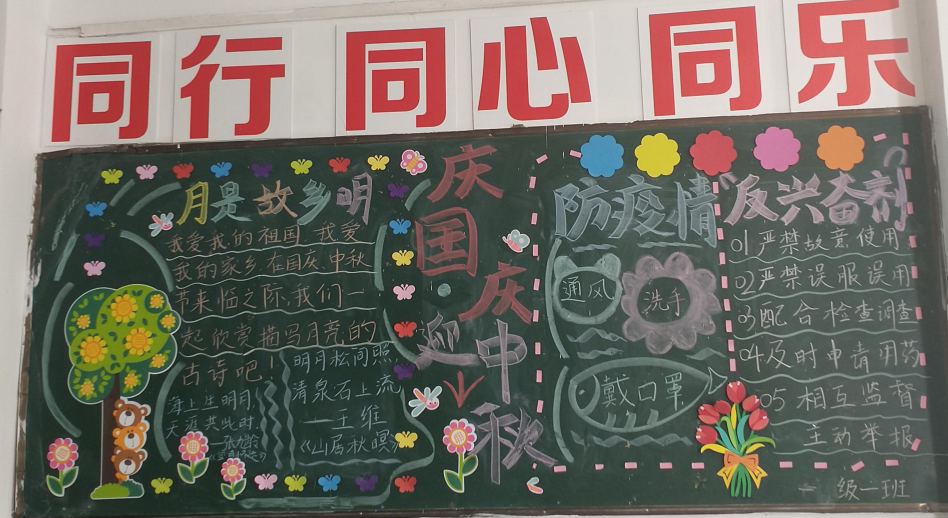 同行 同心 同乐
月是故乡明
我爱我的祖国,我爱
我的家乡,在国庆,中秋
节来临之际,我们一
起欣赏描写月亮的
古诗吧!
海上生明月,
天涯共此时.
—张九龄
明月松间照,
清泉石上流
—王维
《山居秋暝》
庆
国
庆
迎中
秋
防疫情
通风
洗手
戴口罩
反兴奋剂
01严禁故意使用
02严禁误服误用
03配合检查调查
04及时申请用药
05相互监督
主动举报
一级一班